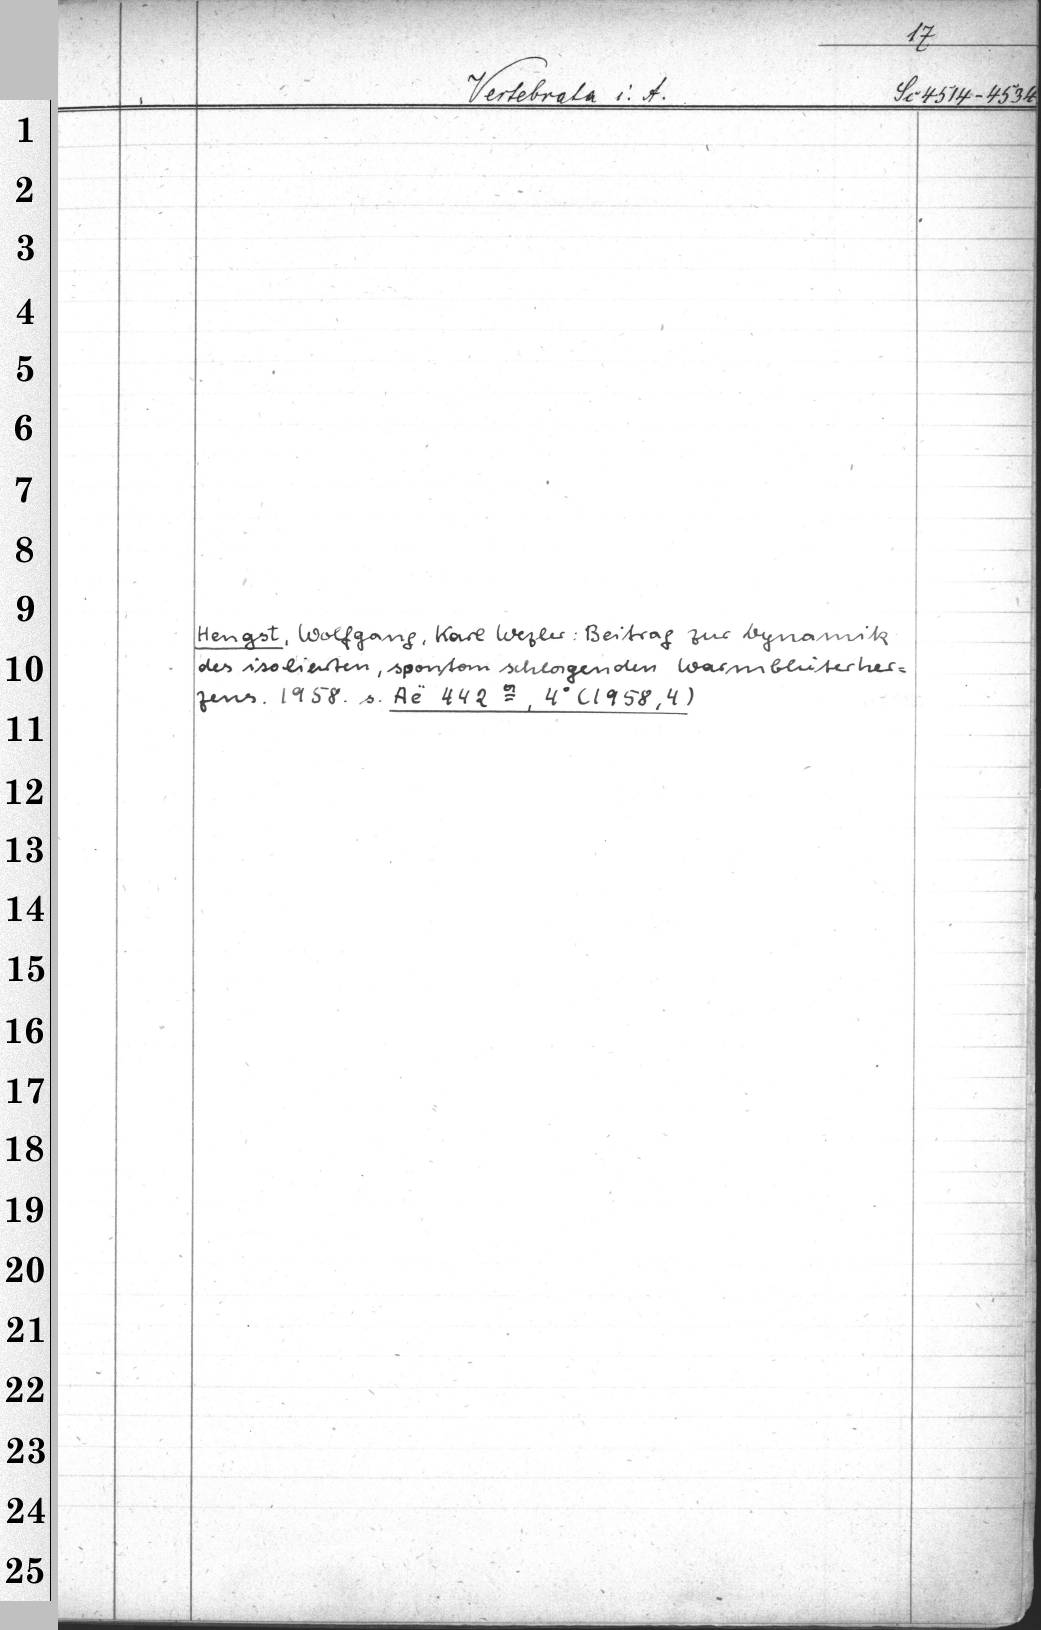 17
Vertebrata i. A.
Sc 4514-4534
1
2
3
4
5
6
7
8
9
Hengst, Wolfgang, Karl Wezler: Beitrag zur Dynamik
10
des isolierten, spontan schlagenden Warmblüterher=
zens. 1958. s. Aë 442 , 4° (1958,4)
11
12
13
14
15
16
17
18
19
20
21
22
23
24
25